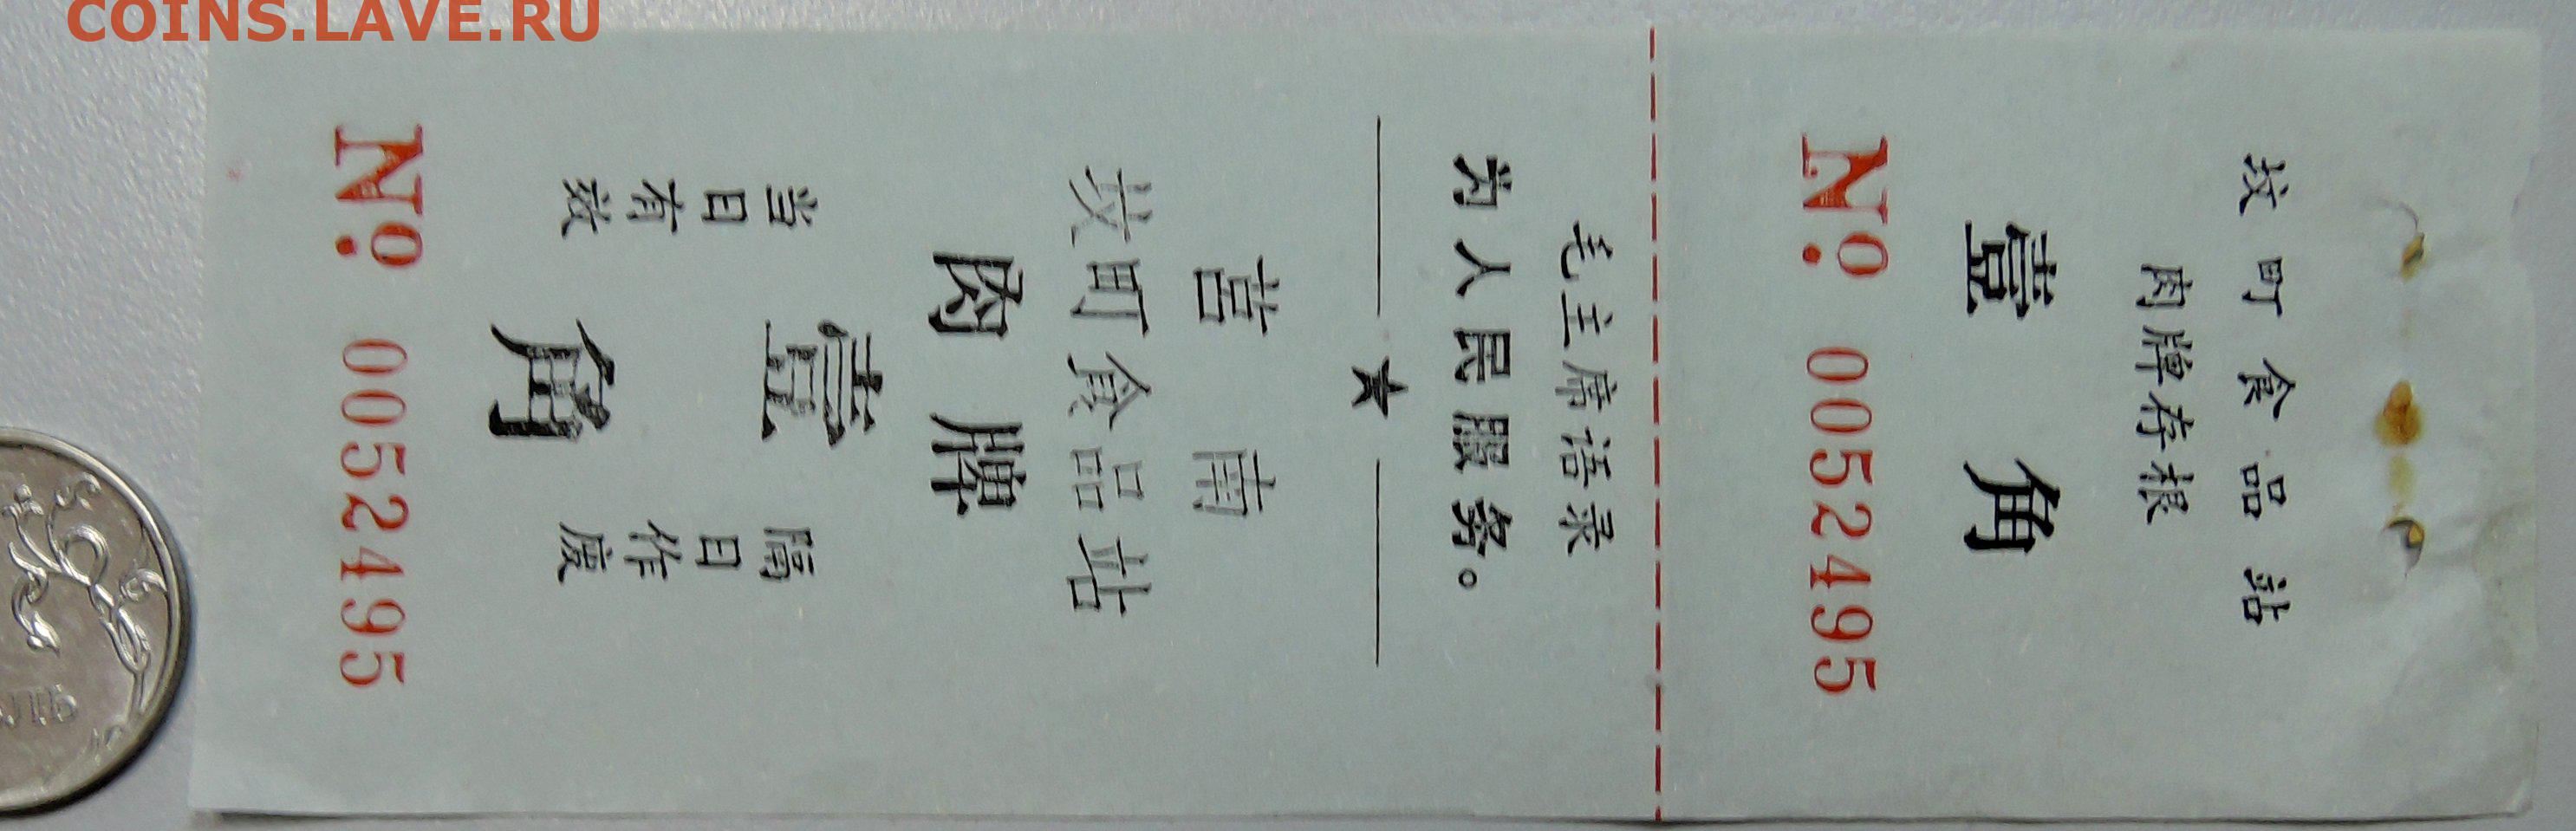 COINS.LAVE.RU
坟町食品站
肉牌存根
壹角
№ 0052495
毛主席语录
为人民服务。
莒南
坟町食品站
肉牌
当日有效
壹角
隔日作废
№ 0052495